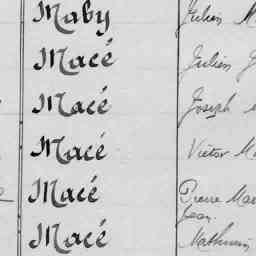 Maby Julien
Macé Julien
Macé Joseph
Macé Victor
Macé Pierre
Jean
Macé Mathurin